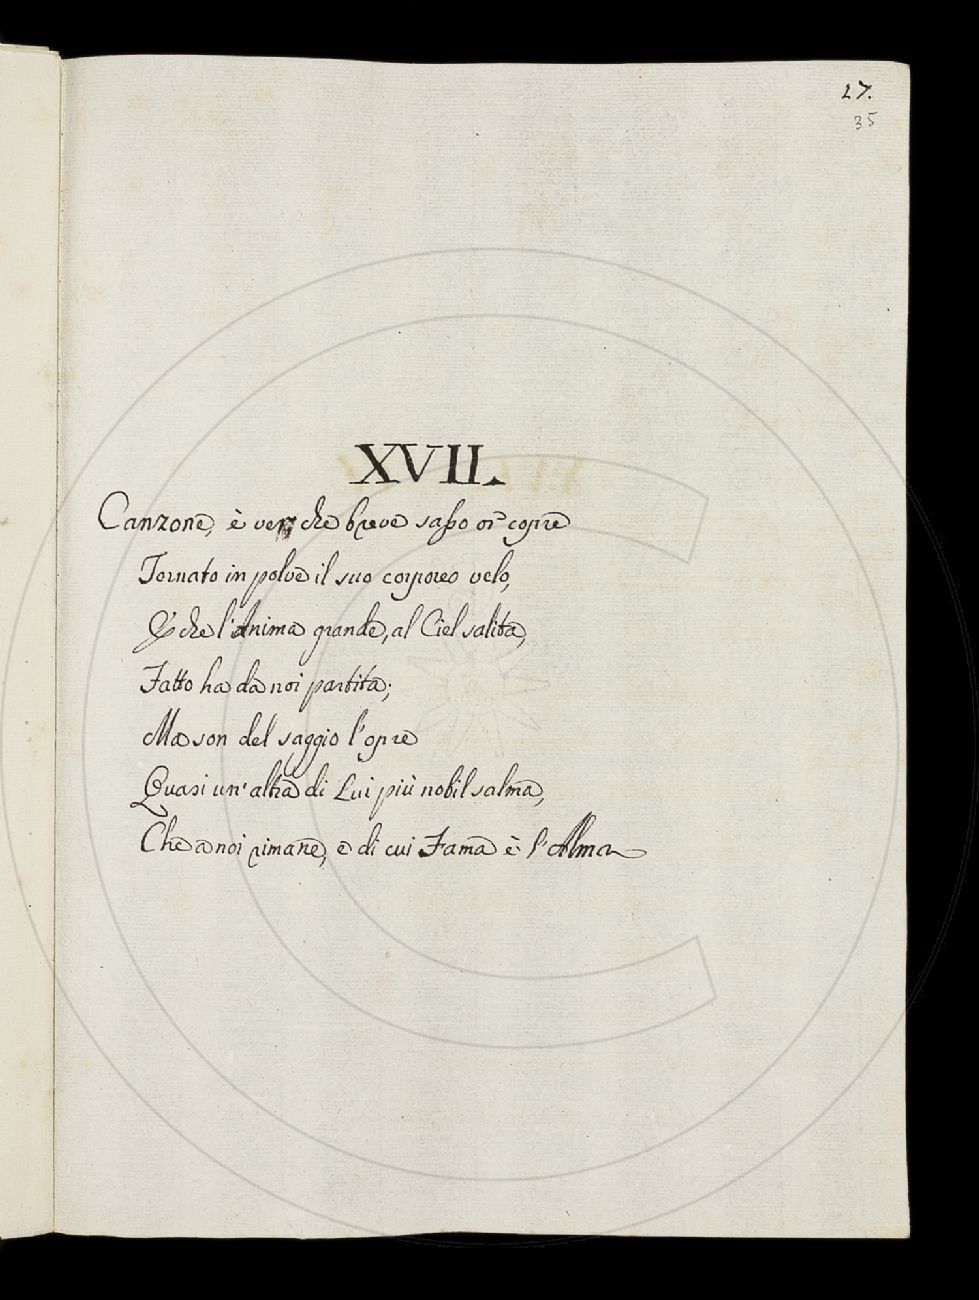 27.
35
XVII.
Canzone, è ver che breve sasso or copre
Tornato in polve il suo corporeo velo,
E che l'Anima grande, al Ciel salita,
Fatto ha da noi partita;
Ma son del saggio l'opre
Quasi un'altra di Lui più nobil salma,
Che a noi rimane, e di cui Fama è l'Alma